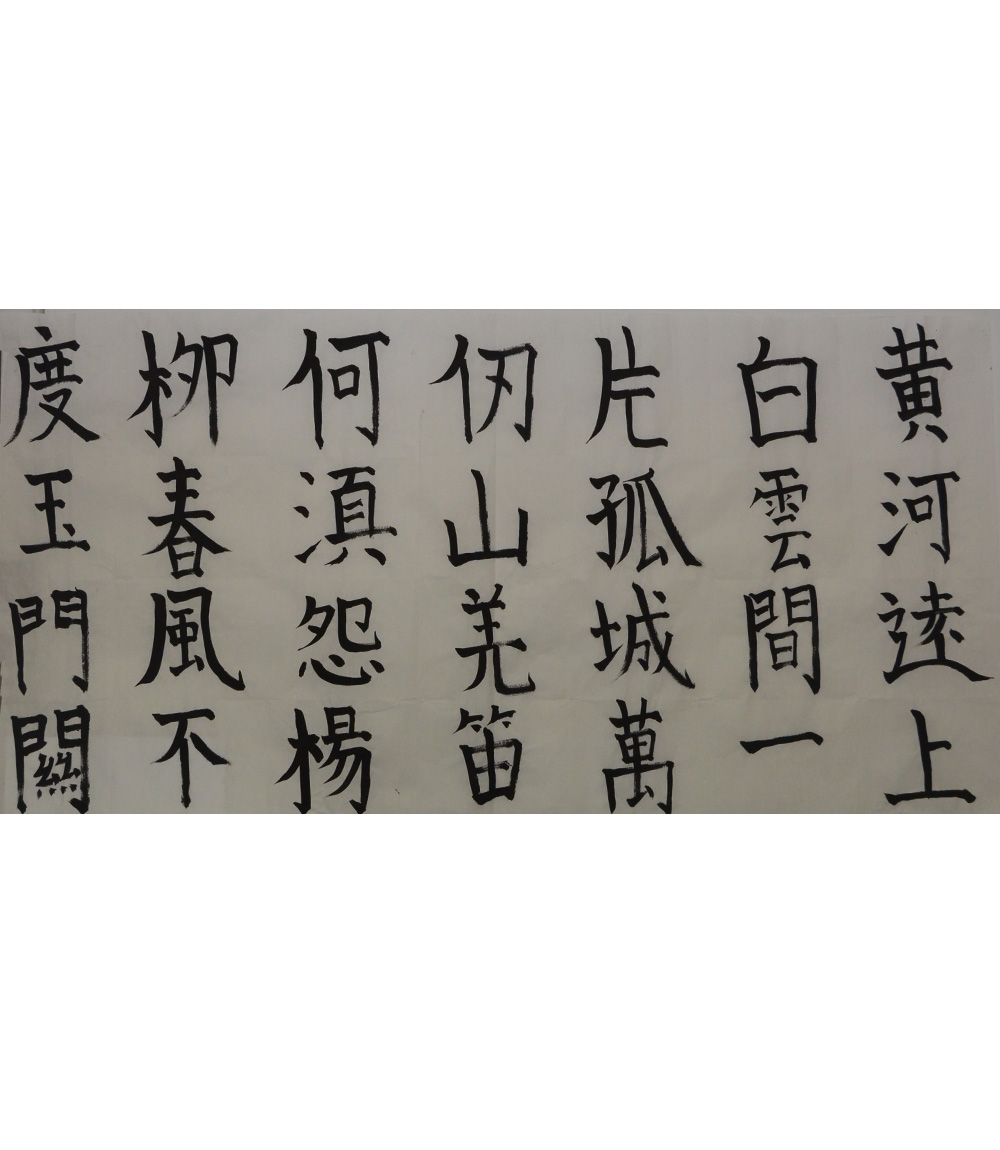 黄河逺上
白雲間一
片孤城萬
仞山羌笛
何湏怨楊
柳春風不
度玉門關